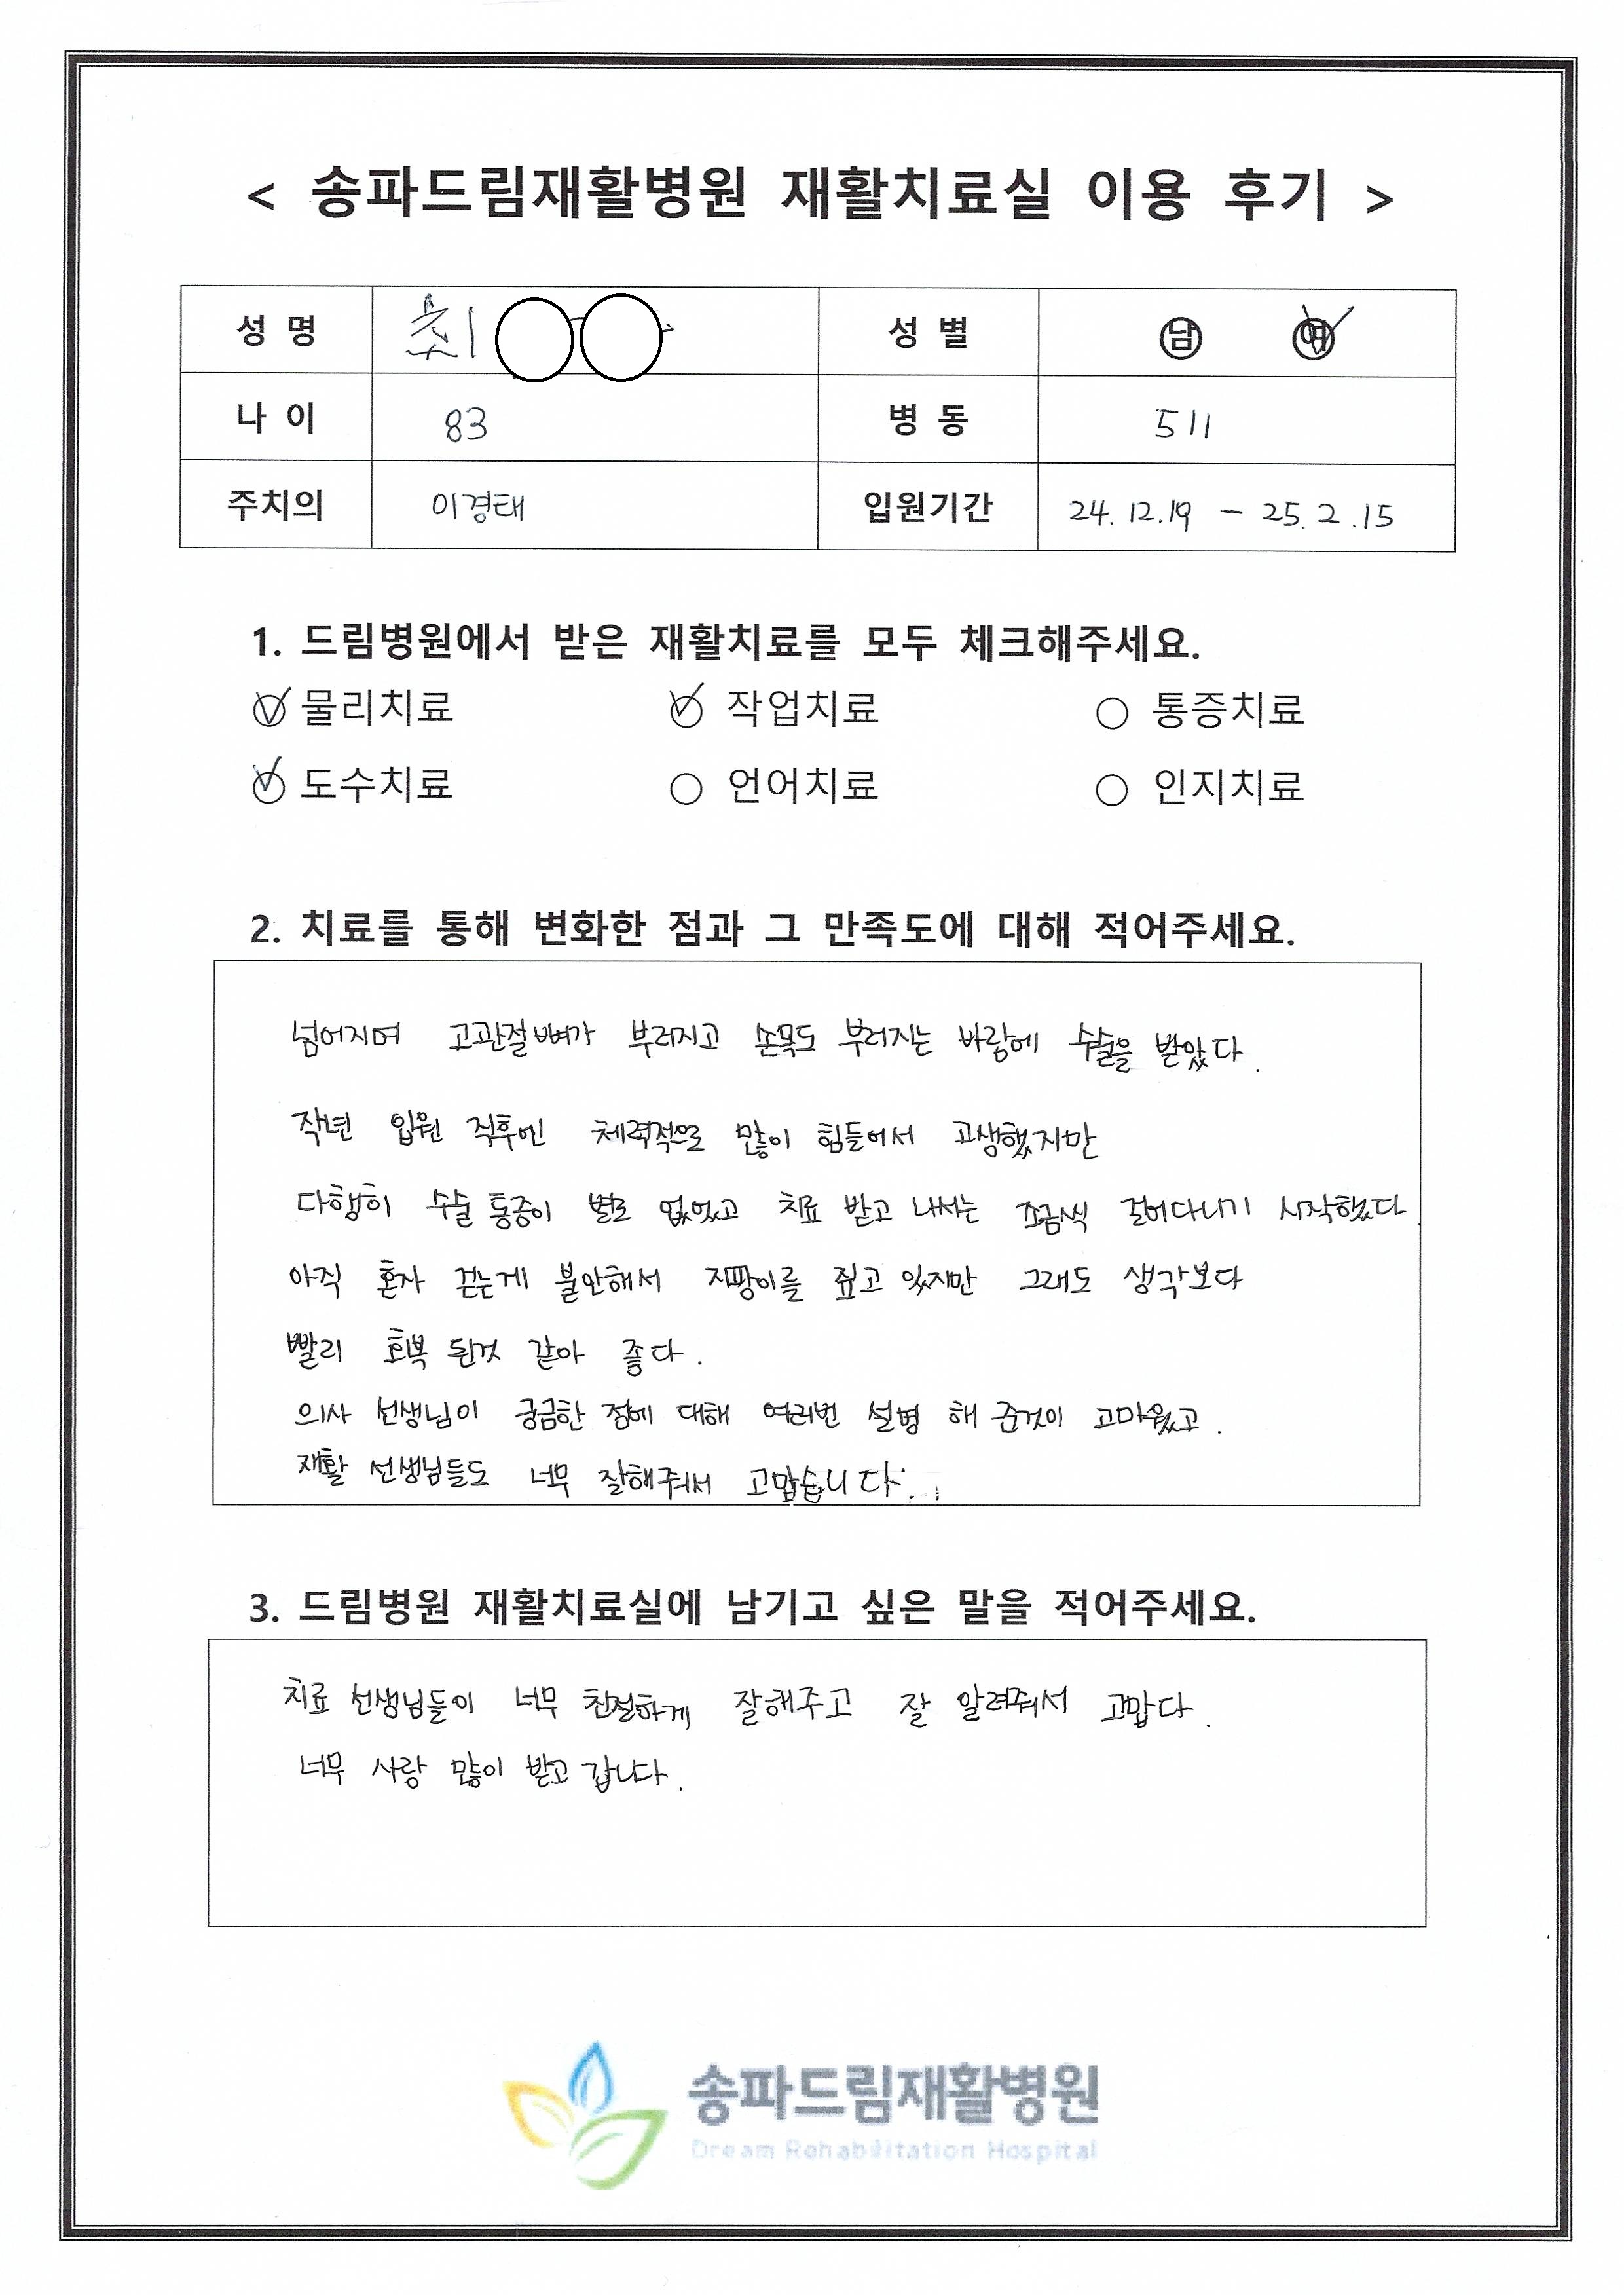 < 송파드림재활병원 재활치료실 이용 후기 >
성 명 최 성 별 남 여
나 이 83 병 동 511
주치의 이경태 입원기간 24. 12. 19 - 25. 2. 15
1. 드림병원에서 받은 재활치료를 모두 체크해주세요.
물리치료 작업치료 통증치료
도수치료 언어치료 인지치료
2. 치료를 통해 변화한 점과 그 만족도에 대해 적어주세요.
넘어지며 고관절뼈가 부러지고 손목도 부러지는 바람에 수술을 받았다.
작년 입원 직후엔 체력적으로 많이 힘들어서 고생했지만
다행히 수술 통증이 별로 없었고 치료 받고 나서는 조금씩 걸어다니기 시작했다
아직 혼자 걷는게 불안해서 지팡이를 짚고 있지만 그래도 생각보다
빨리 회복 된것 같아 좋다.
의사 선생님이 궁금한 점에 대해 여러번 설명 해 준것이 고마웠고.
재활 선생님들도 너무 잘해줘서 고맙습니다.
3. 드림병원 재활치료실에 남기고 싶은 말을 적어주세요.
치료 선생님들이 너무 친절하게 잘해주고 잘 알려줘서 고맙다.
너무 사랑 많이 받고 갑니다.
송파드림재활병원
Dream Rehabilitation Hospital